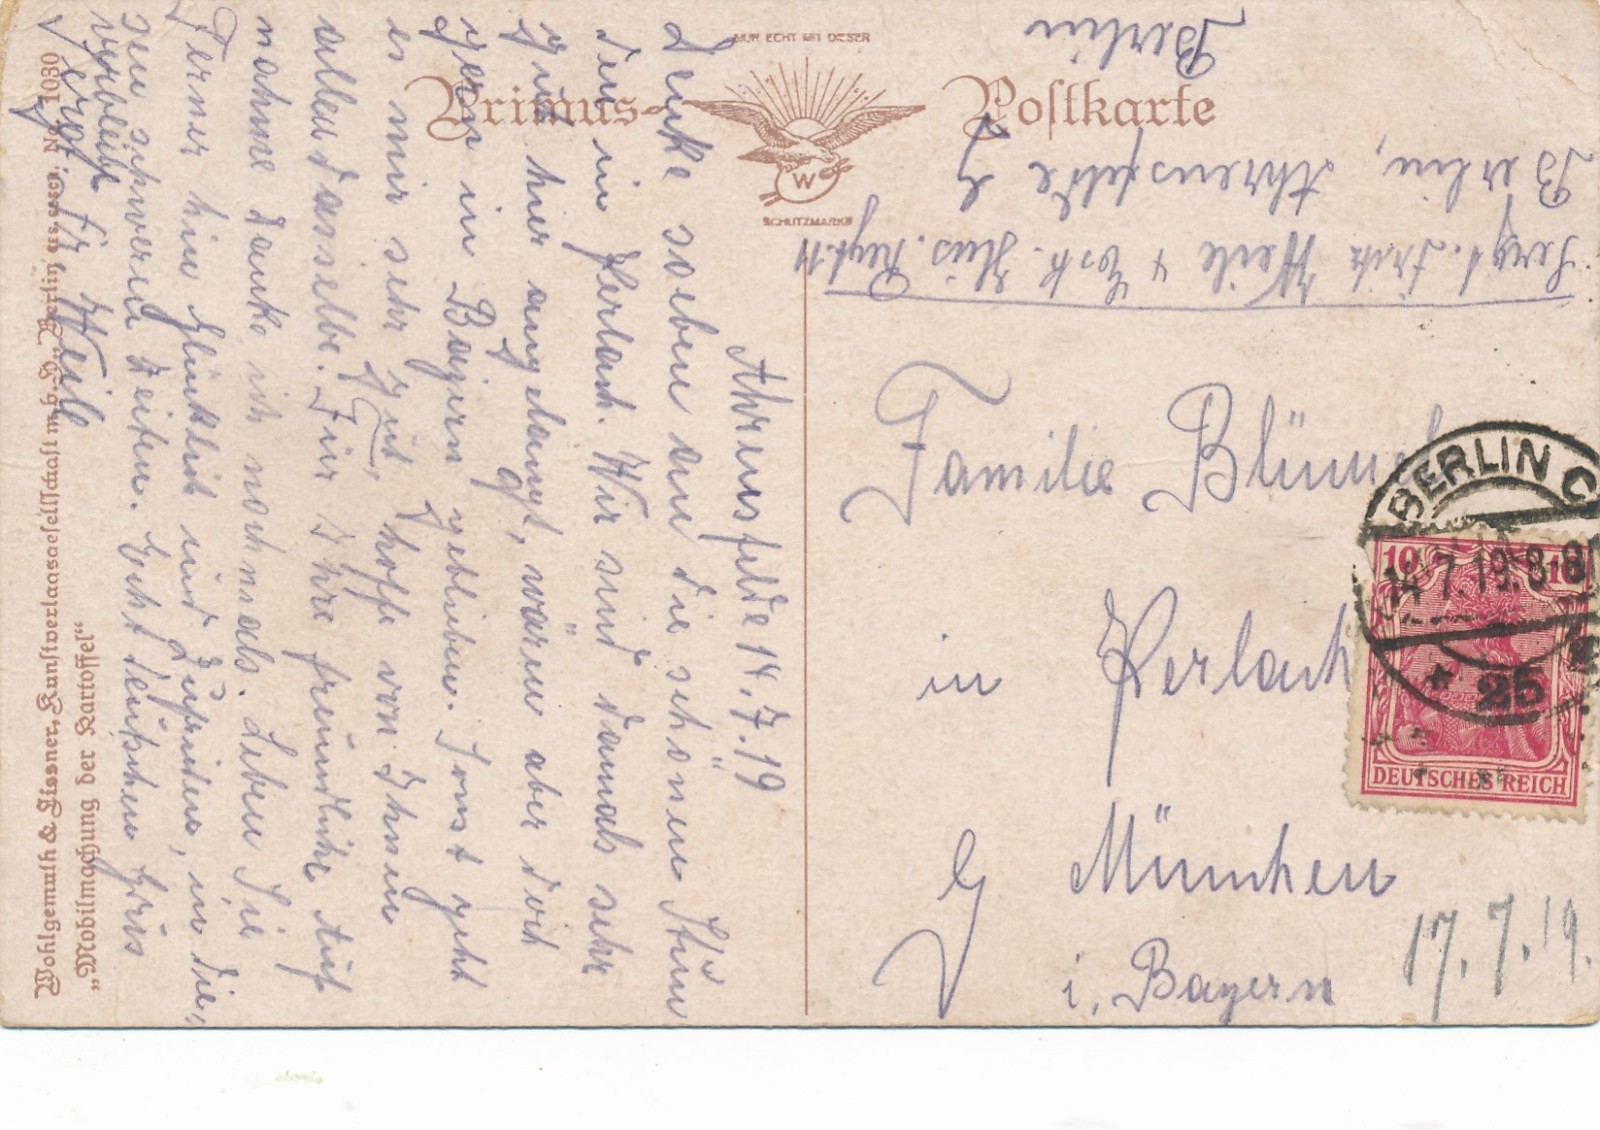 NUR ECHT MIT DIESER
Primus-Postkarte
W
SCHUTZMARKE
Wohlgemuth & Lissner, Kunstverlagsgesellschaft m.b.H., Berlin No 1030
„Mobilmachung der Kartoffel“
Ahrensfelde 14.7.19
Denke soeben an die schönen Stun
den in Perlach. Wir sind damals sehr
gut hier angelangt, wären aber doch
gern in Bayern geblieben. Sonst geht
es mir sehr gut, hoffe von Ihnen
allen dasselbe. Für Ihre freundliche Auf
nahme danke ich nochmals. Leben Sie
Ferner hin glücklich und zufrieden, in die-
sen schweren Zeiten. Echt deutschen Grus
verbleibt
Sergt. Fr. Weile
Sergt. Fritz Weile 4 Esk. Hus. Regt. 11
Berlin, Ahrensfelde b/
Berlin
Familie Blümel
in Perlach
b/ München
i. Bayern
BERLIN C
14.7.19. 8-9
* 25
10 10
DEUTSCHES REICH
17.7.19.